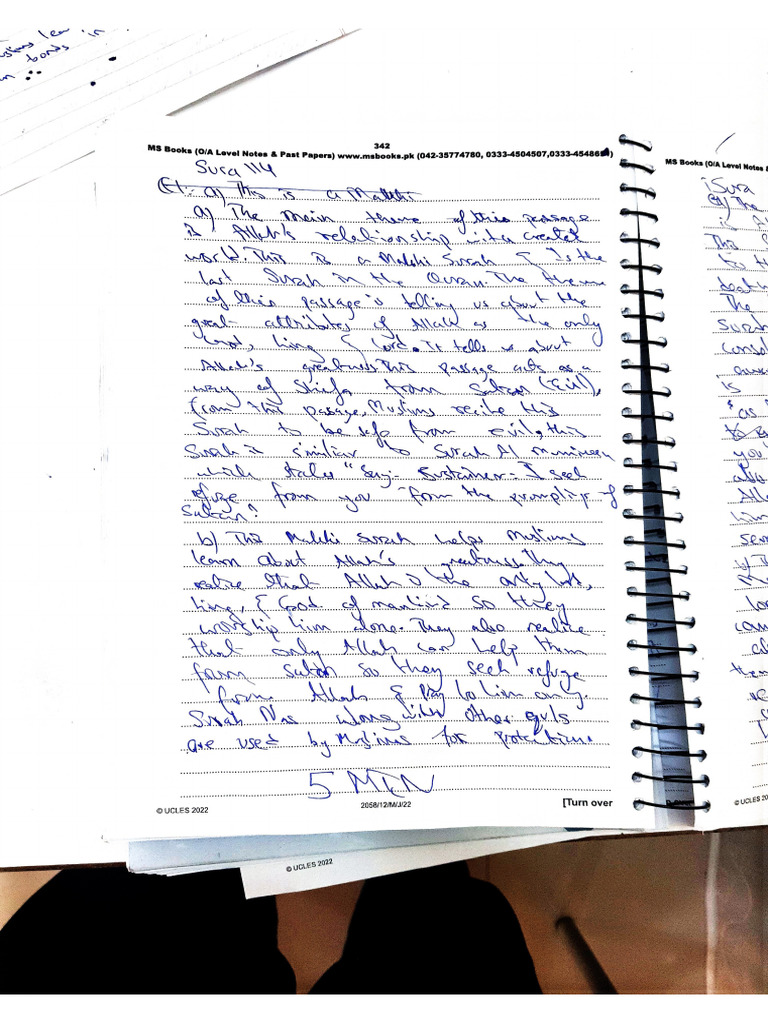 bonds in
342
MS Books (O/A Level Notes & Past Papers) www.msbooks.pk (042-35774780, 0333-4504507,0333-4548651)
MS Books (O/A Level Notes &
Sura 114
a) This is a Makkhi
a) The main theme of this passage
is Allah's relationship with created
world. This is a Makkhi Surah & is the
last Surah in the Quran. The theme
of this passage is telling us about the
great attributes of Allah as the only
Lord, king & Lord. It tells us about
Allah's greatness. This passage acts as a
way of Shifa from Satan (Evil),
from this passage, Muslims recite this
Surah to be safe from evil, this
Surah is similiar to Surah Al muminoon
which states "Say:- Sustainer:- I seek
refuge from you from the promptings of
Satan".
b) This Makkhi Surah helps Muslims
learn about Allah's greatness. They
realize that Allah is the only Lord,
king, & God of mankind so they
worship him alone. They also realize
that only Allah can help them
from satan so they seek refuge
from Allah & Pray to him only.
Surah Nas along with other quls
are used by Muslims for protection.
5 MIN
© UCLES 2022
2058/12/M/J/22
[Turn over
© UCLES 2022
Sura
The
is
This
The
Surah
is
"as
you
him